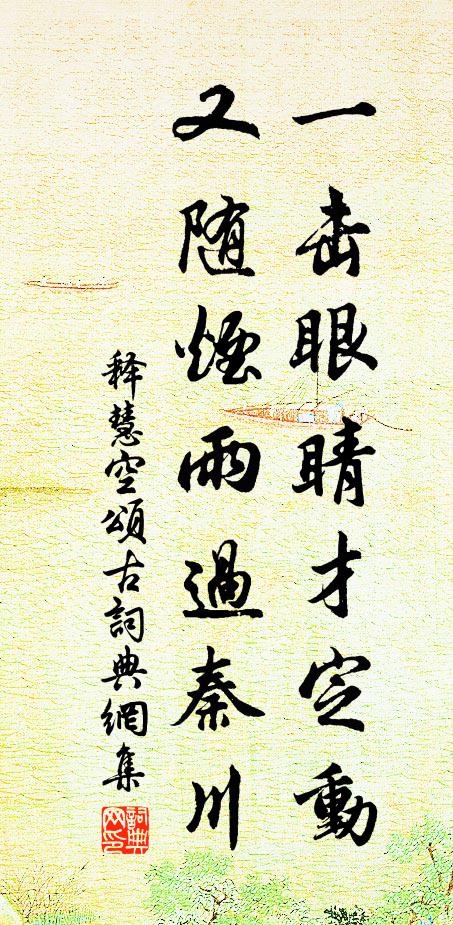 一击眼睛才定動
又随煙雨過秦川
释慧空頌古詞典網集
詞典網印